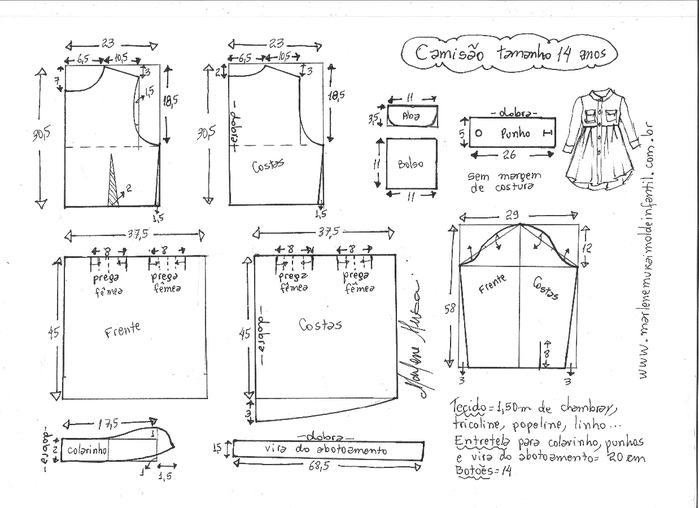 Camisão tamanho 14 anos
23
6,5
10,5
7
3
1,5
18,5
30,5
2
1,5
23
6,5
10,5
2
3
18,5
30,5
-dobra-
Costas
1,5
11
3,5
Aba
11
Bolso
11
-dobra-
5
Punho
26
sem margem
de costura
www.marlenemukaimoldeinfantil.com.br
37,5
8
8
prega
fêmea
prega
fêmea
45
Frente
37,5
8
8
prega
fêmea
prega
fêmea
45
-dobra-
Costas
3
Marlene Mukai
29
12
58
Frente
Costas
8
3
3
17,5
-dobra-
2
colarinho
1
1
1,5
-dobra-
15
vira do abotoamento
68,5
Tecido = 1,50m de chambray,
tricoline, popeline, linho...
Entretela para colarinho, punhos
e vira do abotoamento = 20 cm
Botões = 14